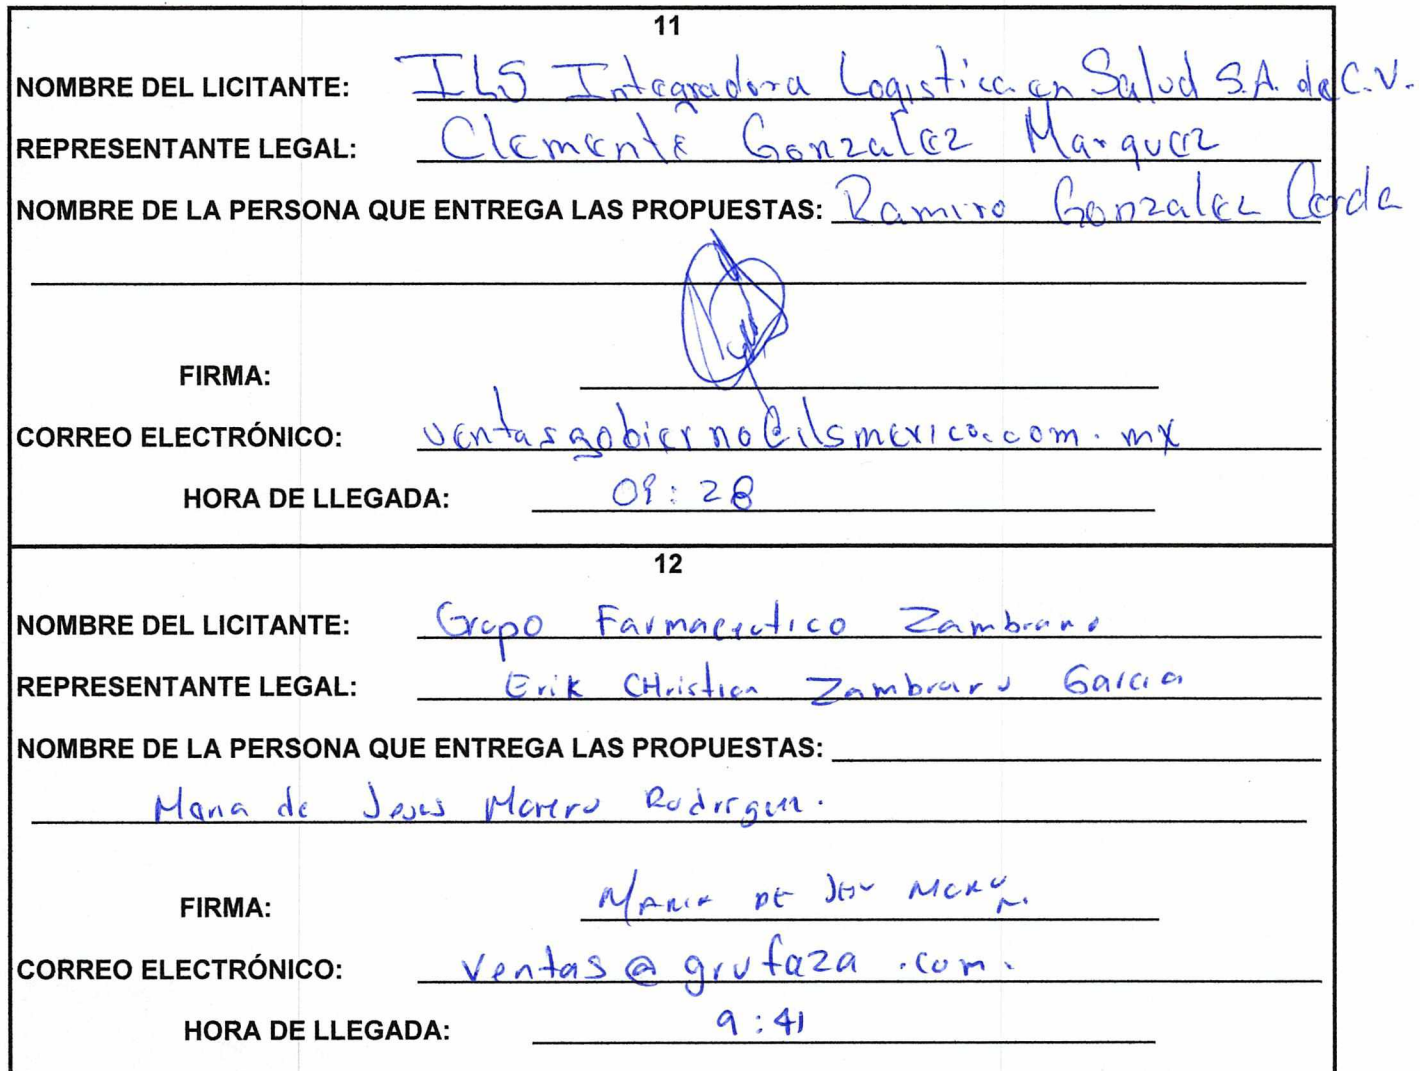 11
NOMBRE DEL LICITANTE: ILS Integradora Logistica en Salud S.A. de C.V.
REPRESENTANTE LEGAL: Clemente Gonzalez Marquez
NOMBRE DE LA PERSONA QUE ENTREGA LAS PROPUESTAS: Ramiro Gonzalez Cerda
FIRMA:
CORREO ELECTRÓNICO: ventasgobierno@ilsmexico.com.mx
HORA DE LLEGADA: 09:28
12
NOMBRE DEL LICITANTE: Grupo Farmaceutico Zambrano
REPRESENTANTE LEGAL: Erik CHristian Zambrano Garcia
NOMBRE DE LA PERSONA QUE ENTREGA LAS PROPUESTAS:
Maria de Jesus Moreno Rodriguez.
FIRMA: MARIA DE
CORREO ELECTRÓNICO: ventas@grufaza.com.
HORA DE LLEGADA: 9:41